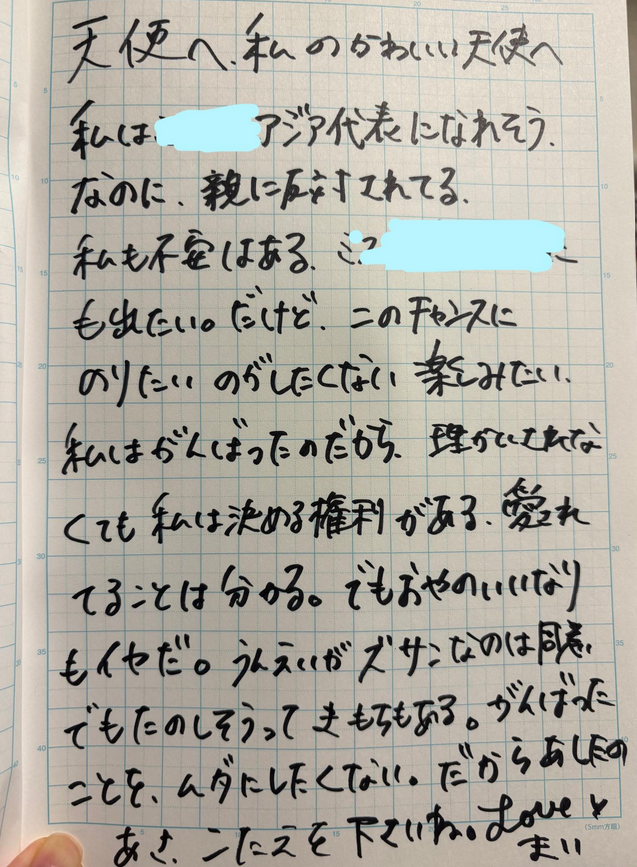 天使へ、私のかわいい天使へ
私は アジア代表になれそう、
なのに、親に反対されてる、
私も不安はある、ミス に
も出たい。だけど、このチャンスに
のりたい のがしたくない 楽しみたい、
私はがんばったのだから、理かいされな
くても 私は決める権利がある、愛され
てることは分かる。でもおやのいいなり
もイヤだ。うんえいがズサンなのは同意、
でもたのしそうって きもちもある。がんばった
ことを、ムダにしたくない。だからあしたの
あさ、こたえを下さいね。Love
まい
(5mm方眼)
5
10
15
20
25
30
35
40